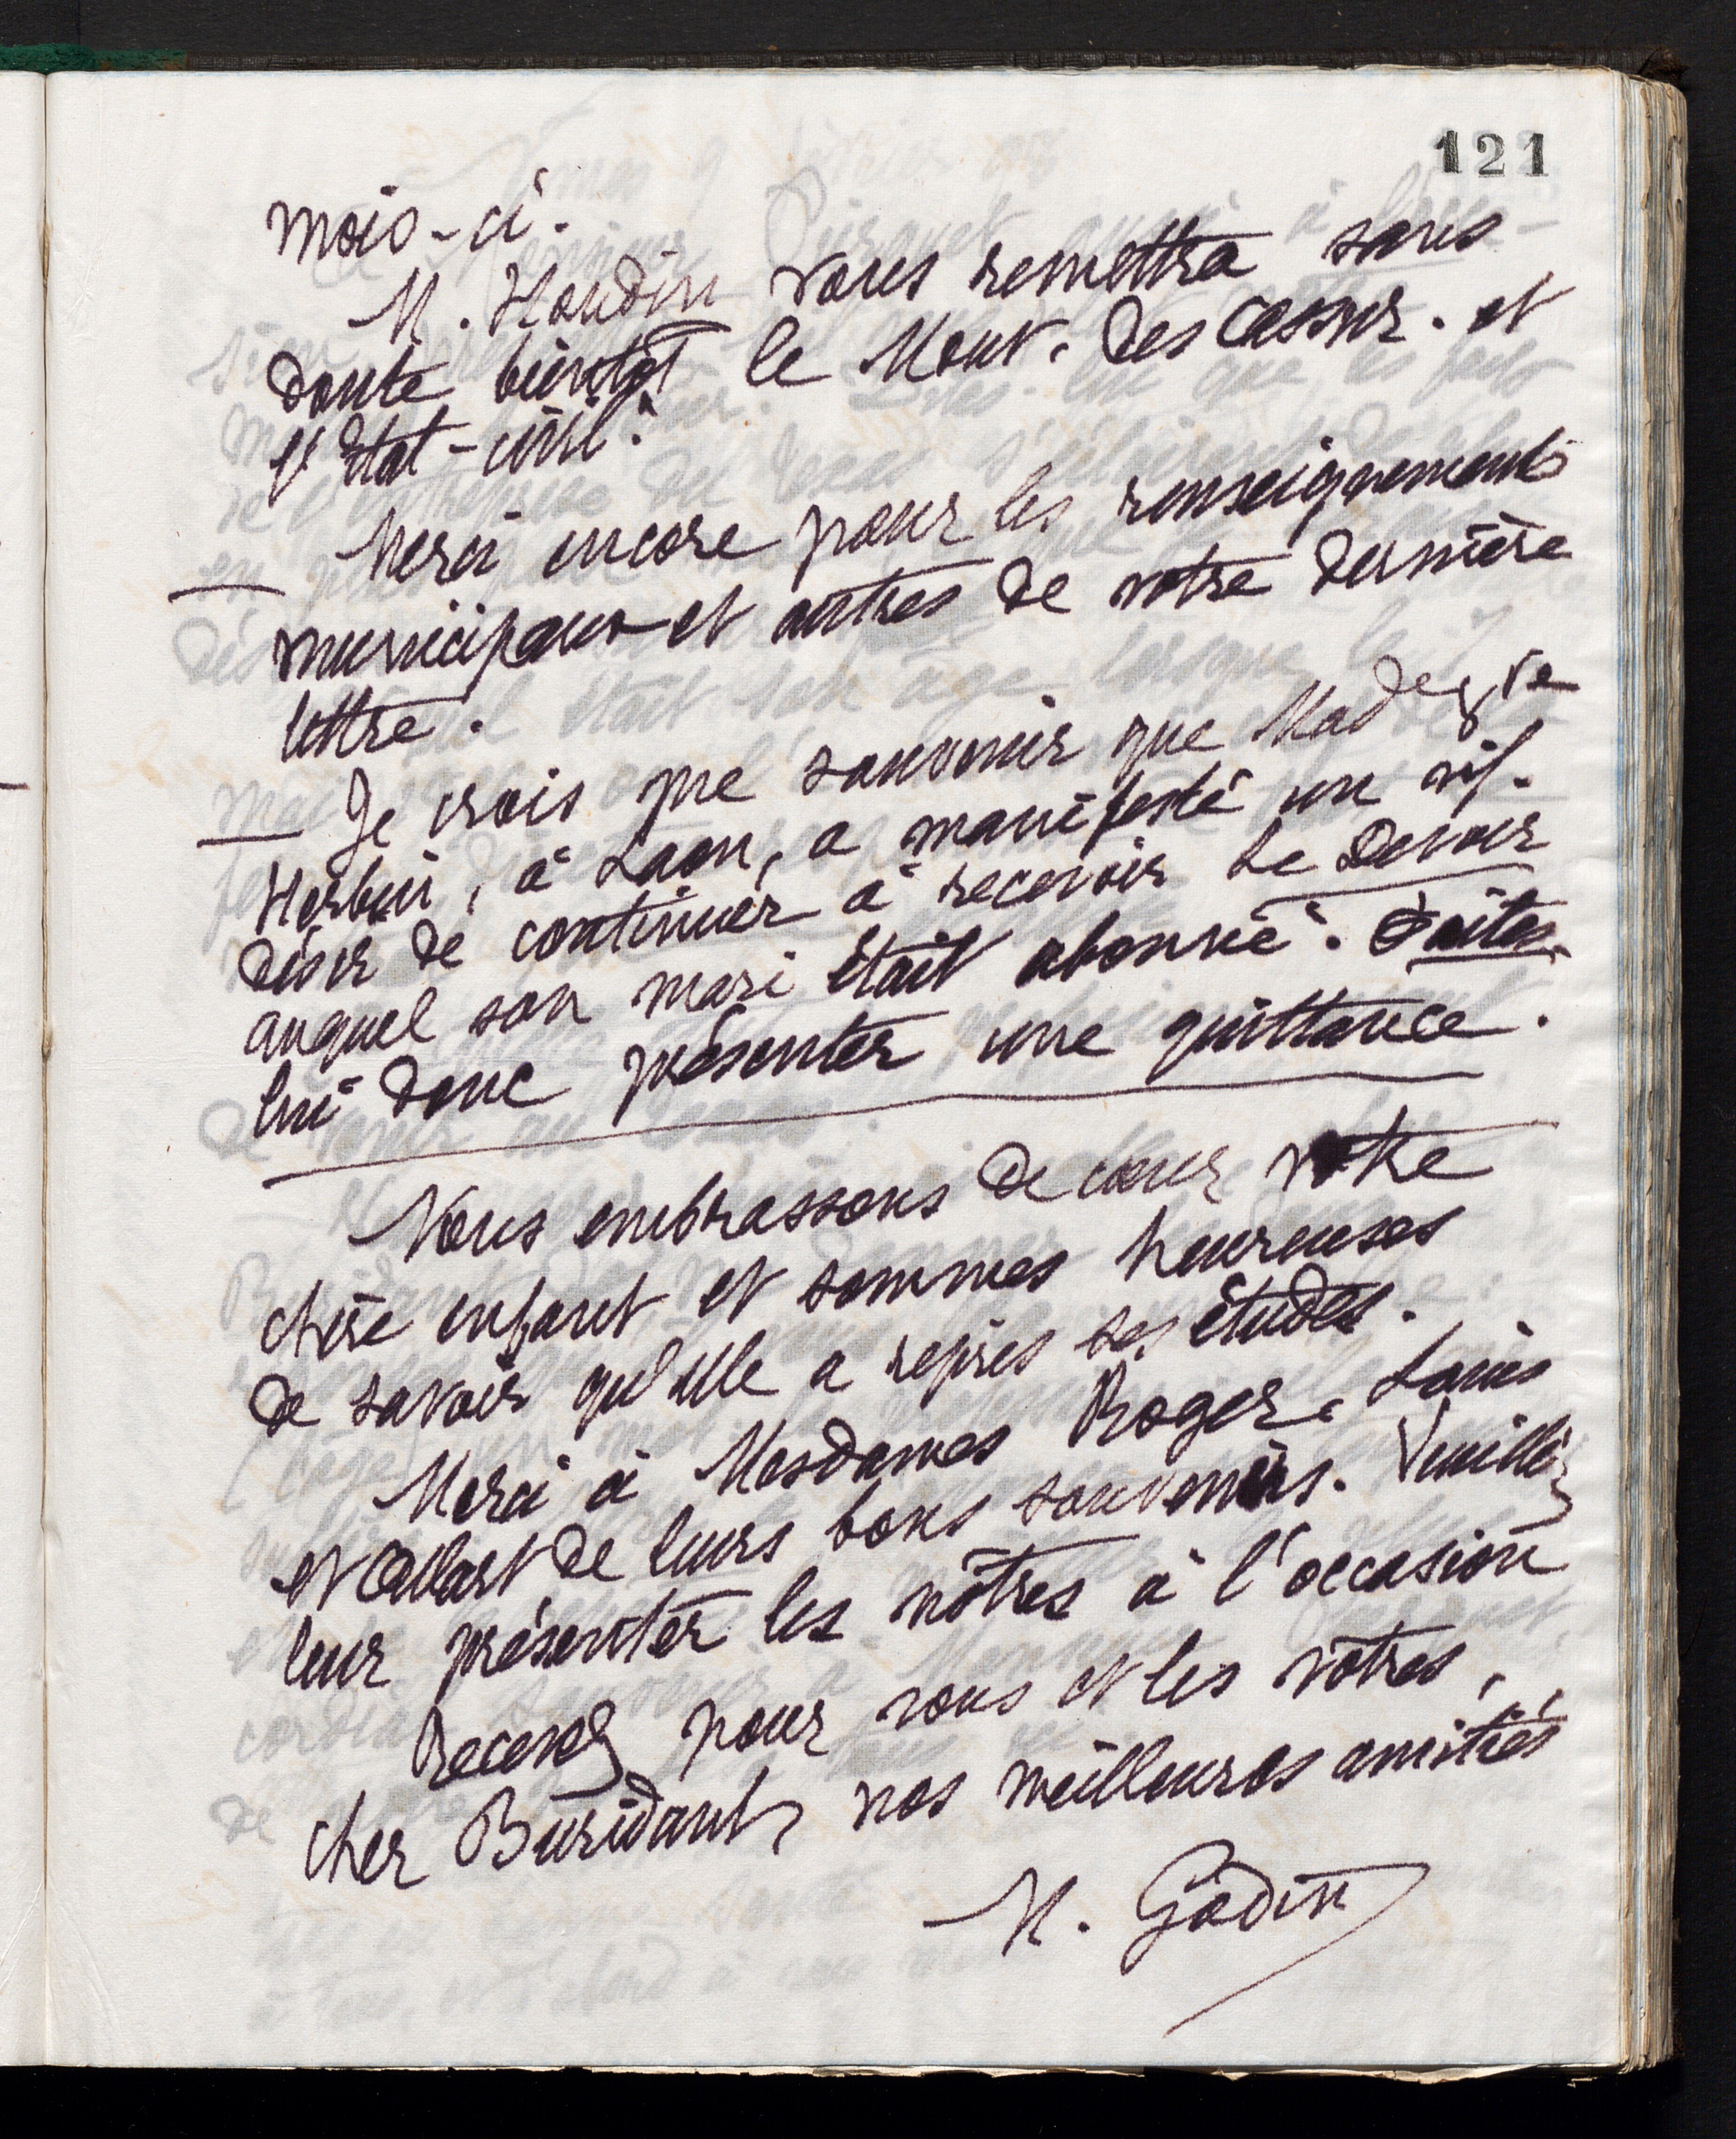 121
mois-ci.
M. Houdin vous remettra sans
doute bientôt le Mouv. des assur. et
l'Etat-civil.
Merci encore pour les renseignements
municipaux et autres de votre dernière
lettre.
Je crois me souvenir que Mad Vve
Herbin, à Laon, a manifesté un vif
désir de continuer à recevoir Le Devoir
auquel son mari était abonné. Faites
lui donc présenter une quittance.
Nous embrassons de cœur votre
chère enfant et sommes heureuses
de savoir qu'elle a repris ses études.
Merci à Mesdames Roger, Louis
et Allart de leurs bons souvenirs. Veuillez
leur présenter les nôtres à l'occasion
Recevez pour vous et les vôtres,
cher Buridant, nos meilleures amitiés
M. Godin